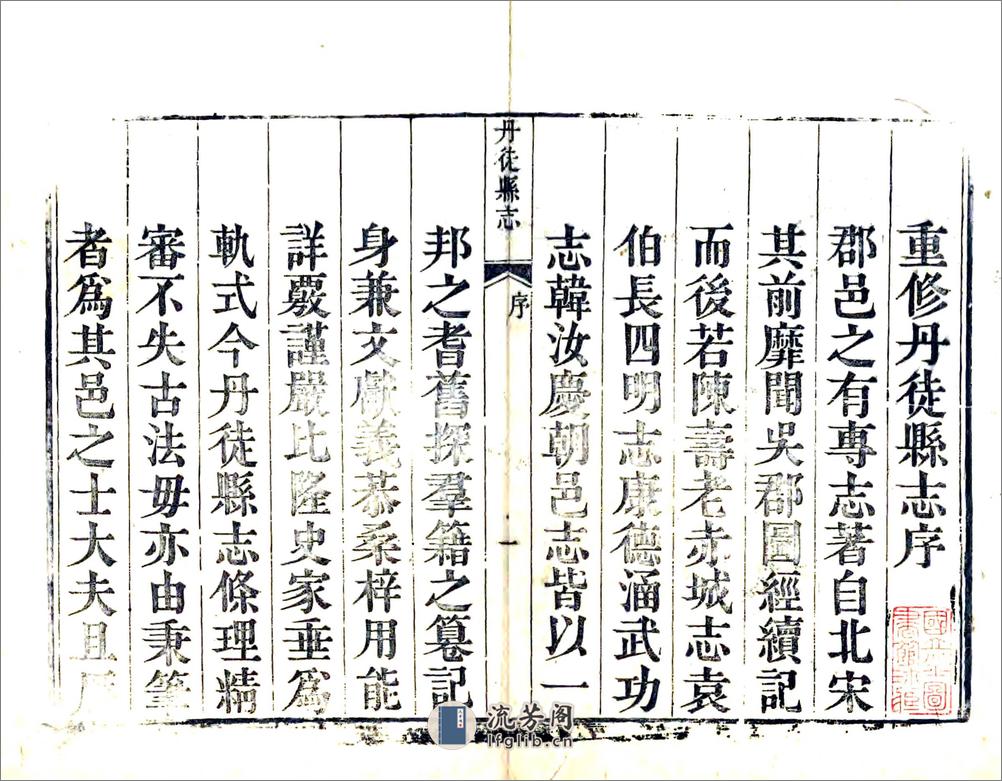 重修丹徒縣志序
郡邑之有專志著自北宋
其前靡聞吳郡圖經續記
而後若陳壽老赤城志袁
伯長四明志康德涵武功
志韓汝慶朝邑志皆以一
丹徒縣志
序
一
邦之耆舊探羣籍之籑記
身兼文獻義恭桑梓用能
詳覈謹嚴比隆史家垂爲
軌式今丹徒縣志條理精
審不失古法毋亦由秉筆
者爲其邑之士大夫且
流芳阁
lfglib.cn